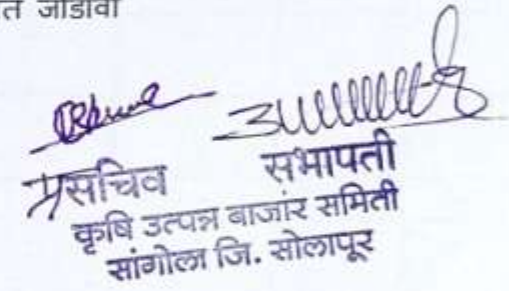 जोडावा
प्र सचिव सभापती
कृषि उत्पन्न बाजार समिती
सांगोला जि. सोलापूर